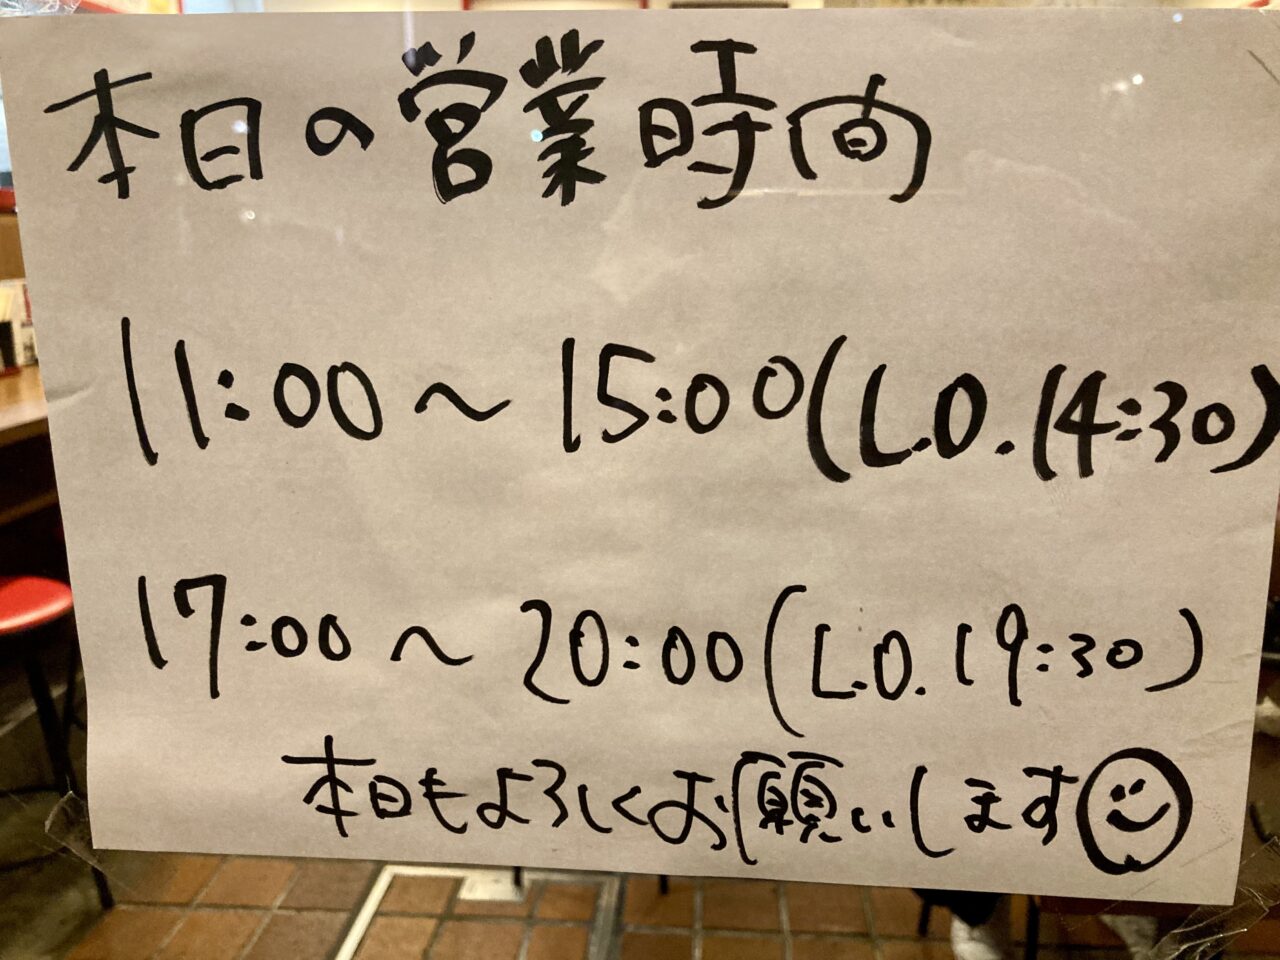 本日の営業時間
11:00～15:00(L.O.14:30)
17:00～20:00(L.O.19:30)
本日もよろしくお願いします